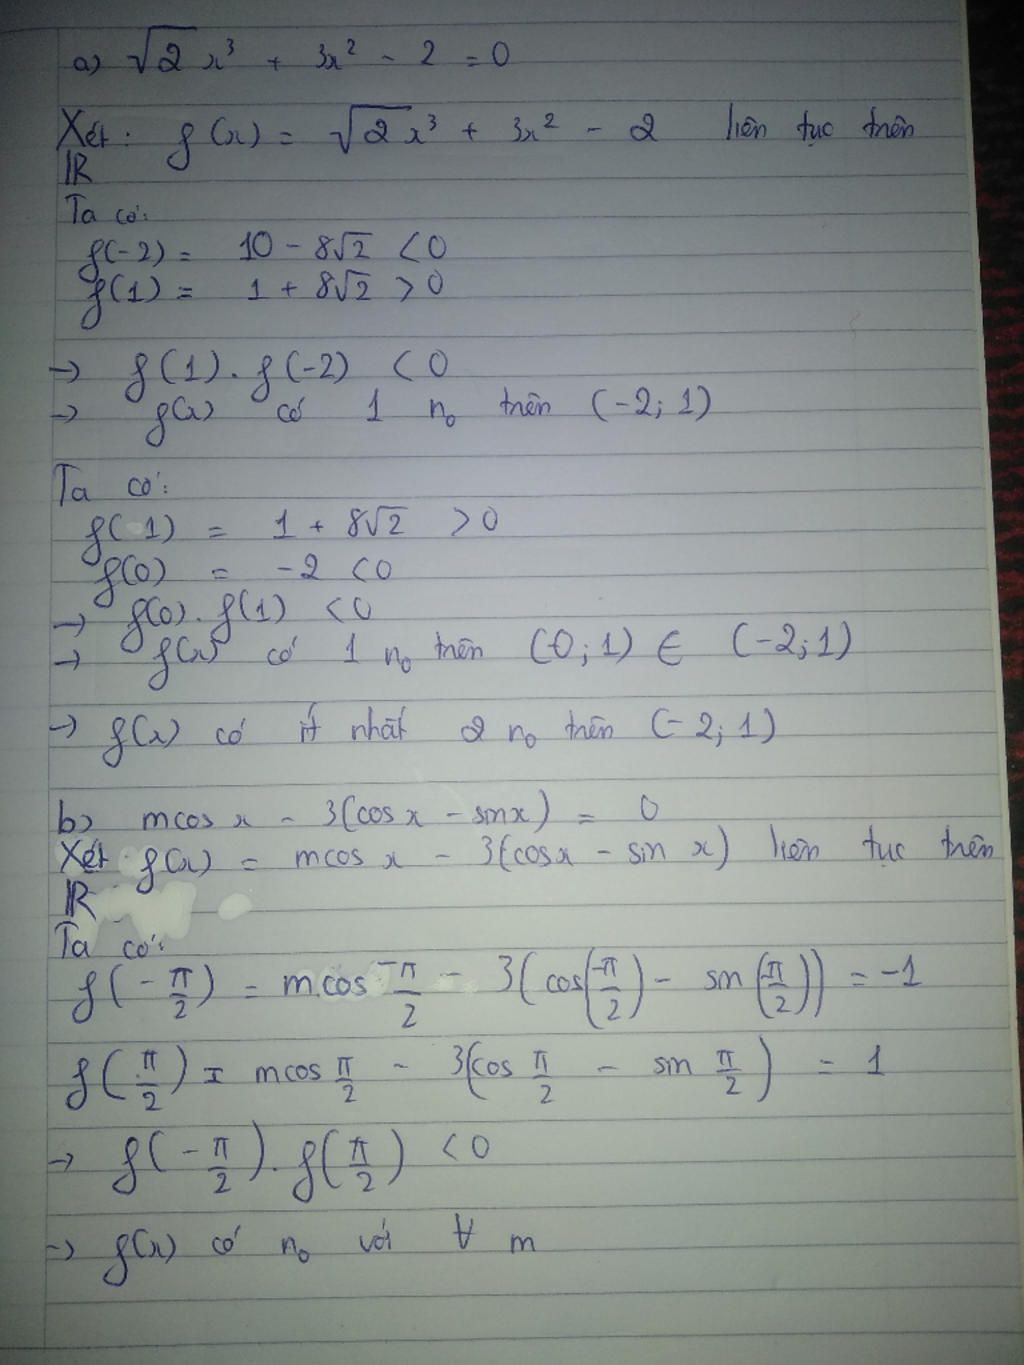 a) √2 x³ + 3x² - 2 = 0
Xét: f(x) = √2x³ + 3x² - 2 liên tục trên
ℝ
Ta có:
f(-2) = 10 - 8√2 < 0
f(1) = 1 + 8√2 > 0
→ f(1). f(-2) < 0
→ f(x) có 1 n₀ trên (-2; 1)
Ta có:
f( 1) = 1 + 8√2 > 0
f(0) = -2 < 0
→ f(0). f(1) < 0
→ f(x) có 1 n₀ trên (0; 1) ∈ (-2; 1)
→ f(x) có ít nhất 2 n₀ trên (-2; 1)
b) mcos x - 3(cos x - sinx) = 0
Xét f(x) = mcos x - 3(cosx - sin x) liên tục trên
ℝ
Ta có:
f(-π/2) = m.cos -π/2 - 3(cos(-π/2) - sin(-π/2)) = -1
f(π/2) = mcos π/2 - 3(cos π/2 - sin π/2) = 1
→ f(-π/2). f(π/2) < 0
→ f(x) có n₀ với ∀ m